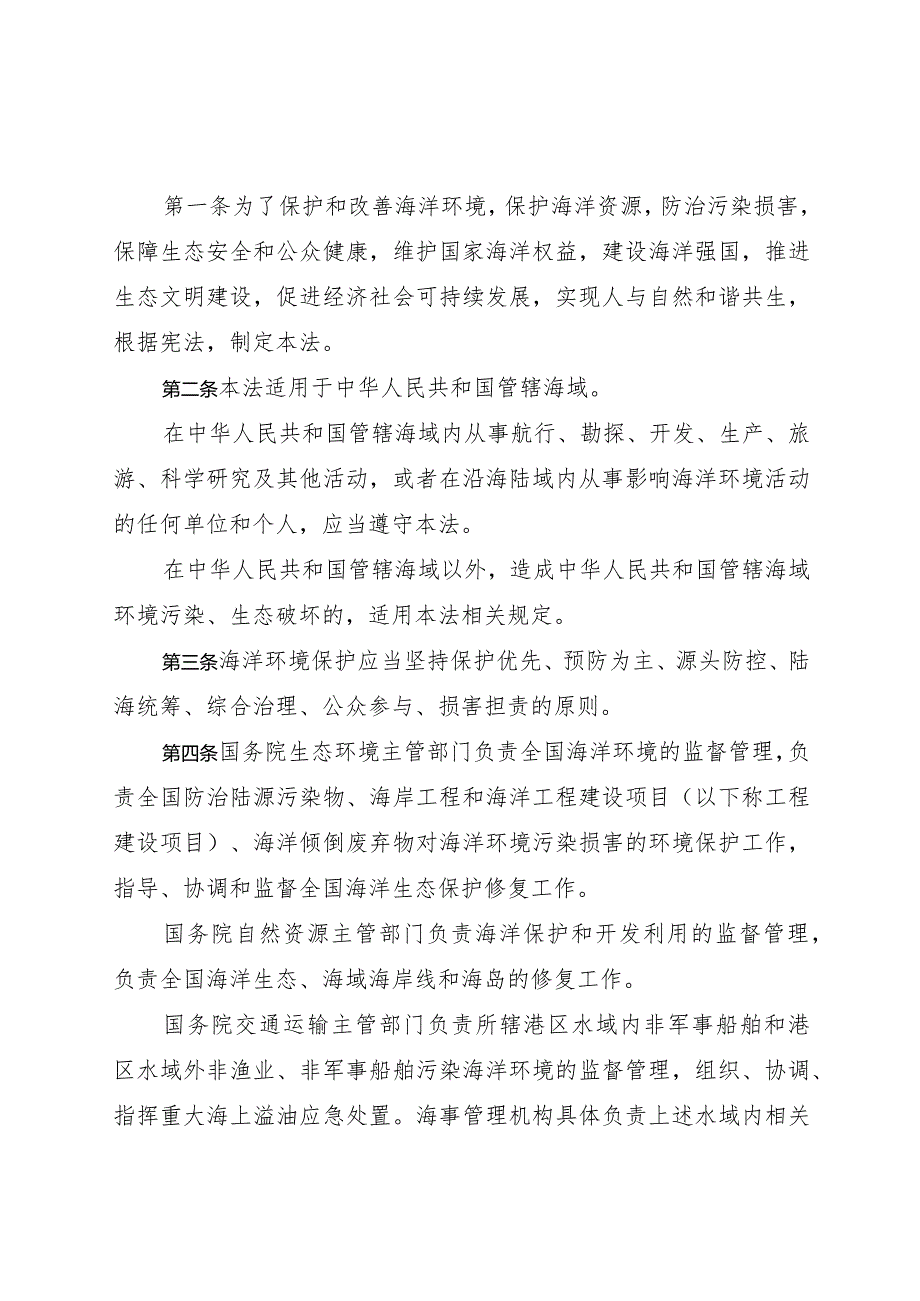 第一条为了保护和改善海洋环境，保护海洋资源，防治污染损害，
保障生态安全和公众健康，维护国家海洋权益，建设海洋强国，推进
生态文明建设，促进经济社会可持续发展，实现人与自然和谐共生，
根据宪法，制定本法。
第二条本法适用于中华人民共和国管辖海域。
在中华人民共和国管辖海域内从事航行、勘探、开发、生产、旅
游、科学研究及其他活动，或者在沿海陆域内从事影响海洋环境活动
的任何单位和个人，应当遵守本法。
在中华人民共和国管辖海域以外，造成中华人民共和国管辖海域
环境污染、生态破坏的，适用本法相关规定。
第三条海洋环境保护应当坚持保护优先、预防为主、源头防控、陆
海统筹、综合治理、公众参与、损害担责的原则。
第四条国务院生态环境主管部门负责全国海洋环境的监督管理，负
责全国防治陆源污染物、海岸工程和海洋工程建设项目（以下称工程
建设项目）、海洋倾倒废弃物对海洋环境污染损害的环境保护工作，
指导、协调和监督全国海洋生态保护修复工作。
国务院自然资源主管部门负责海洋保护和开发利用的监督管理，
负责全国海洋生态、海域海岸线和海岛的修复工作。
国务院交通运输主管部门负责所辖港区水域内非军事船舶和港
区水域外非渔业、非军事船舶污染海洋环境的监督管理，组织、协调、
指挥重大海上溢油应急处置。海事管理机构具体负责上述水域内相关